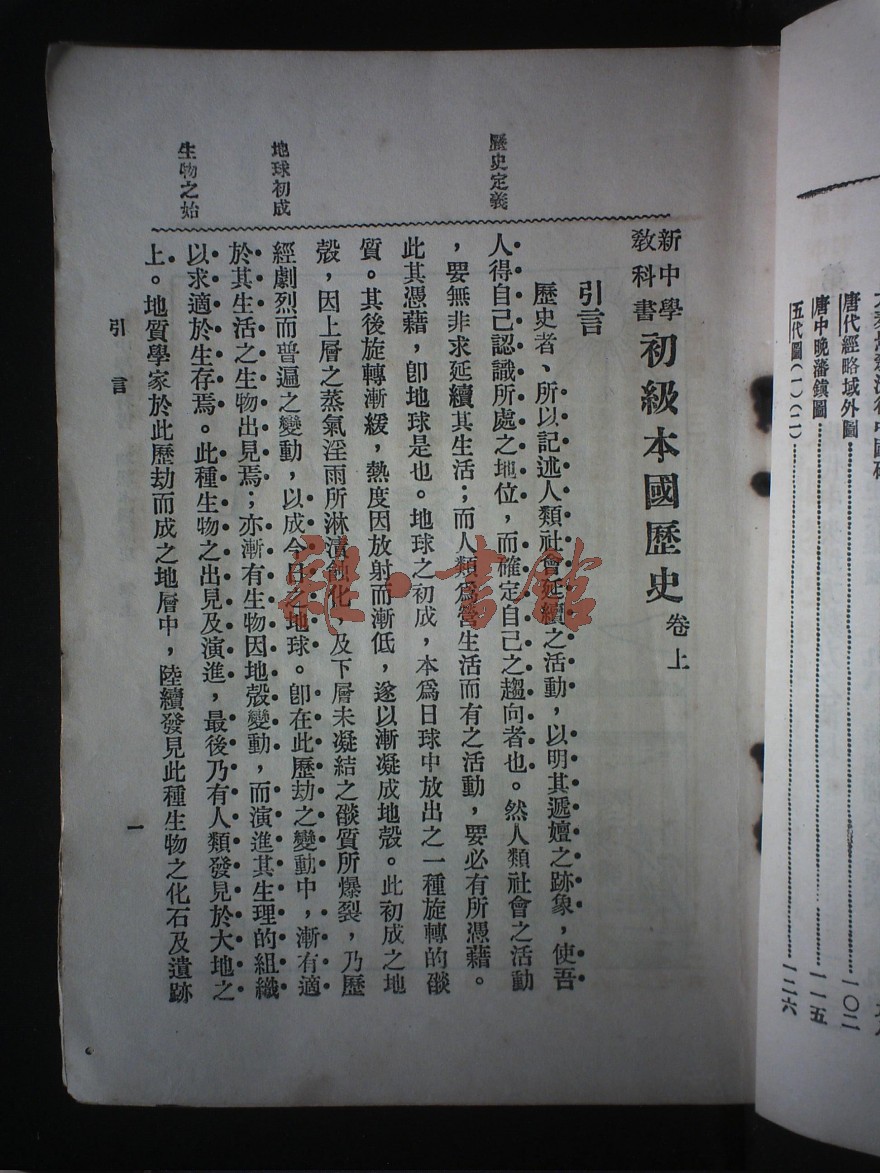 新中學
教科書
初級本國歷史 卷上
引言
歷史定義
歷史者、所以記述人類社會延續之活動，以明其遞嬗之跡象，使吾
人得自己認識所處之地位，而確定自己之趨向者也。然人類社會之活動
，要無非求延續其生活；而人類爲營生活而有之活動，要必有所憑藉。
此其憑藉，卽地球是也。地球之初成，本爲日球中放出之一種旋轉的燄
質。其後旋轉漸緩，熱度因放射而漸低，遂以漸凝成地殼。此初成之地
殼，因上層之蒸氣淫雨所淋漬蝕化，及下層未凝結之燄質所爆裂，乃歷
地球初成
經劇烈而普遍之變動，以成今日之地球。卽在此歷劫之變動中，漸有適
於其生活之生物出見焉；亦漸有生物因地殼變動，而演進其生理的組織
生物之始
以求適於生存焉。此種生物之出見及演進，最後乃有人類發見於大地之
上。地質學家於此歷劫而成之地層中，陸續發見此種生物之化石及遺跡
引言
一
唐代經略域外圖 一〇二
唐中晚藩鎮圖 一一五
五代圖（一）（二） 一二六
雜·書館